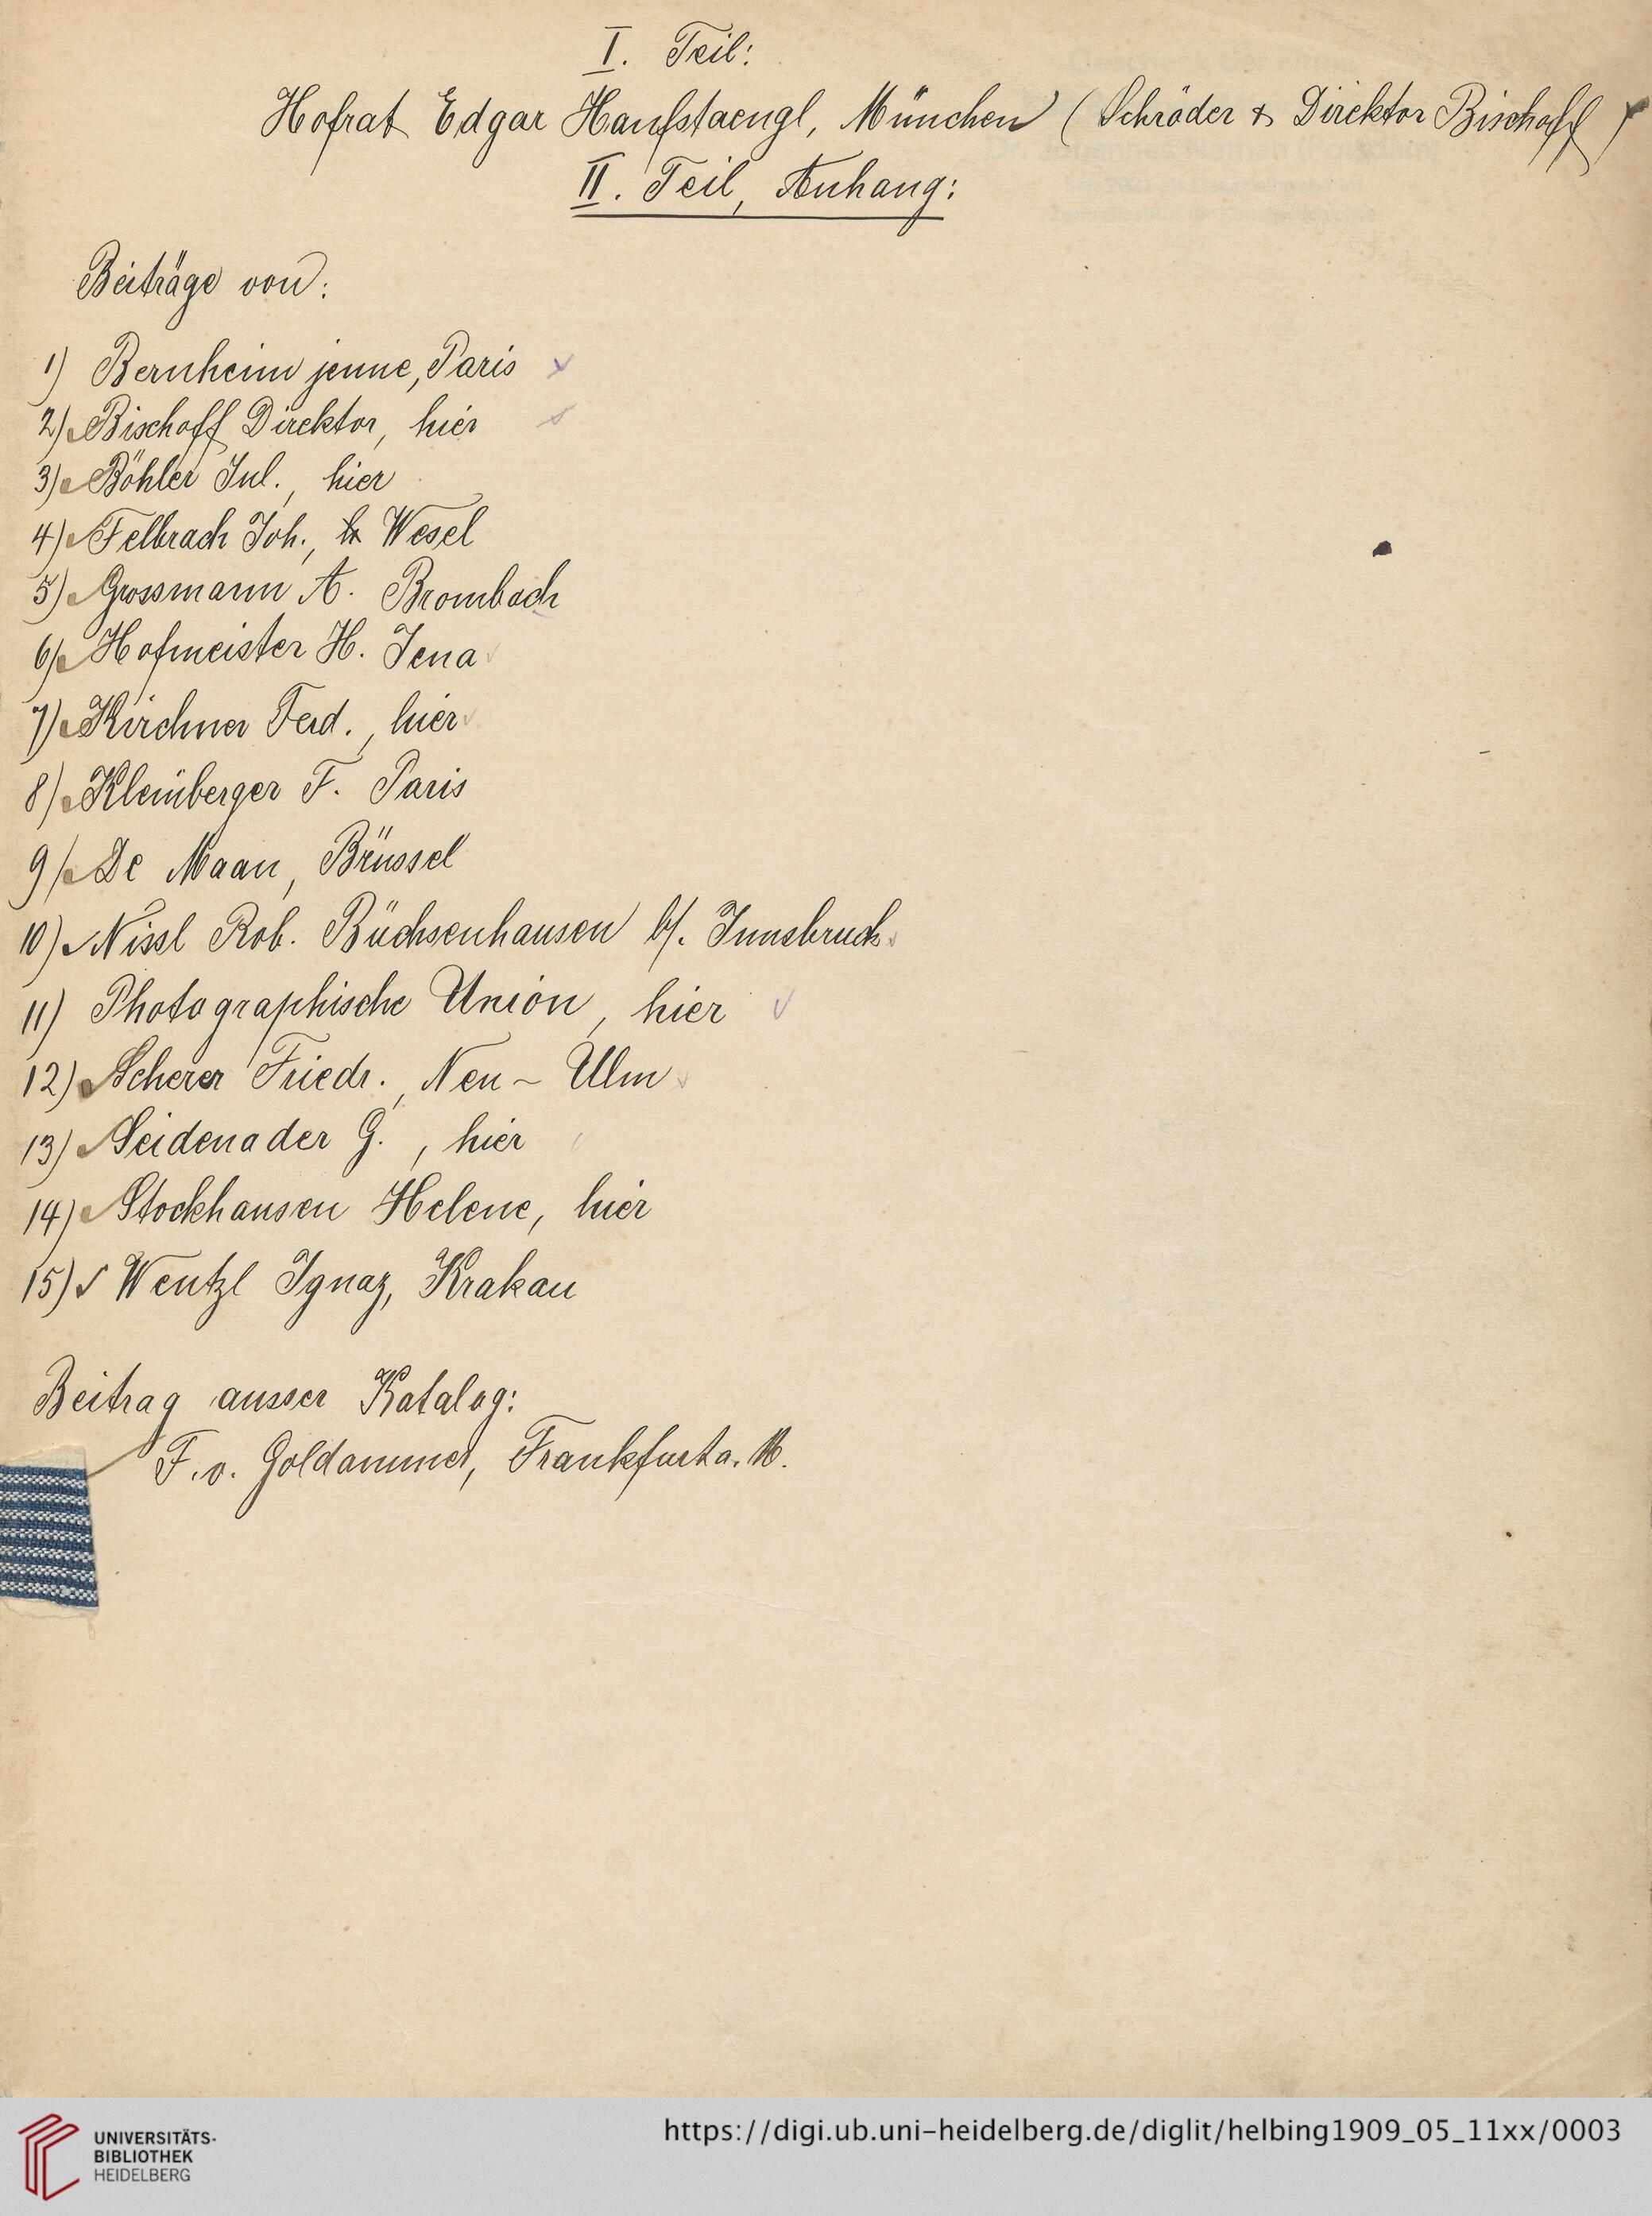 I. Teil:
Hofrat Edgar Hanfstaengl, München (Schröder & Direktor Bischoff)
II. Teil, Anhang:
Beiträge von:
1) Bernheim jenne, Paris
2) Bischoff Direktor, hier
3) Böhler Jul., hier
4) Felbrach Joh., Wesel
5) Grossmann A. Brombach
6) Hofmeister H. Jena
7) Kirchner Ferd., hier
8) Kleinberger F. Paris
9) De Maan, Brüssel
10) Nissl Rob. Büchsenhausen b/. Innsbruck
11) Photographische Union, hier
12) Scherer Friedr., Neu-Ulm
13) Seidenader G., hier
14) Stockhausen Helene, hier
15) Wentzl Ignaz, Krakau
Beitrag ausser Katalog:
F. v. Goldammer, Frankfurt a. M.
UNIVERSITÄTS-
BIBLIOTHEK
HEIDELBERG
https://digi.ub.uni-heidelberg.de/diglit/helbing1909_05_11xx/0003